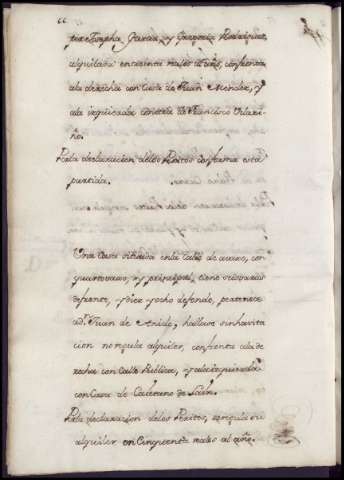 por Josepha Garcia, y Gregoria Rodriguez,
alquilada en treinta reales al año, confronta
ala derecha con Casa de Juan Mendez, y
ala izquierda con otra de Francisco Vilari-
ño.
Pola declaracion delos Peritos conforma esta
partida.
Una Casa sittuada en la Calle de avaxo, con
quartovaxo, y principal, tiene seis varas
defrente, y diez y ocho defondo, pertenece
ad.n Juan de Arido, hallase sin havita
cion no regula alquiler, confronta ala de
recha con Calle Publica, y ala izquierda
con Casa de Caietano de
Pola declarazion delos Peritos, regula su
alquiler en Cinquenta reales al año.